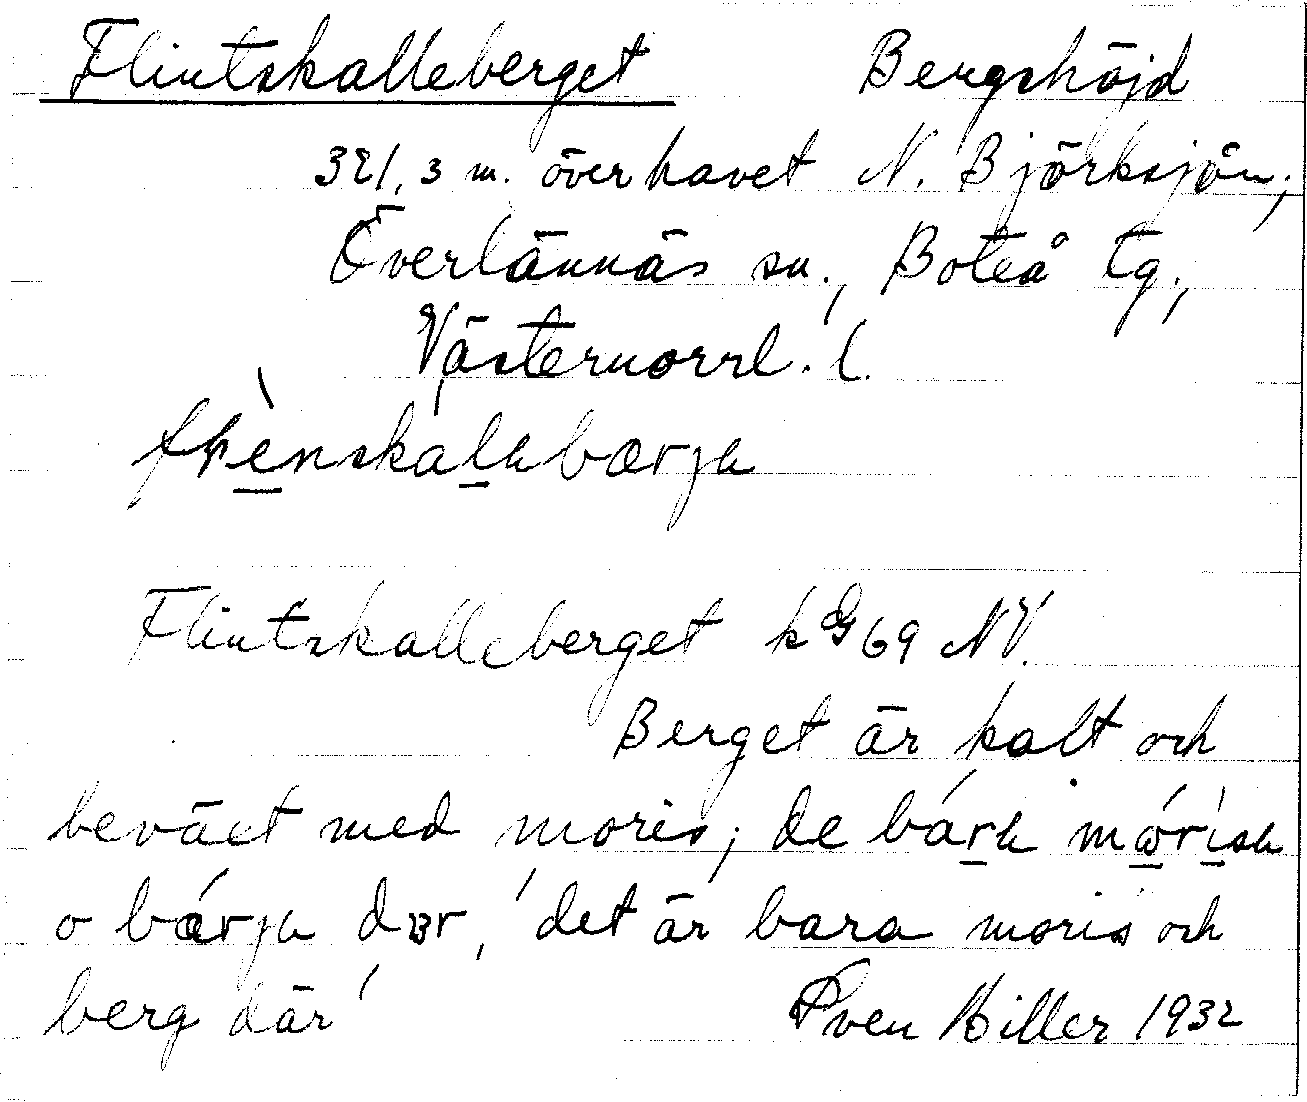 Flintskalleberget Bergshöjd
321,3 m. över havet N. Björksjön,
Överlännäs sn., Boteå tg.,
Västernorrl. l.
Flintskalleberget kG69 NV.
Berget är kalt och
beväxt med moris; de
o 'det är bara moris och
berg där' Sven Hiller 1932